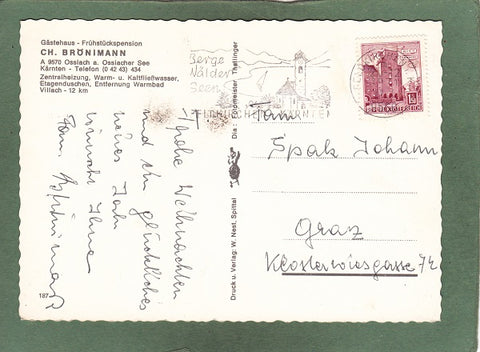 Gästehaus - Frühstückspension
CH. BRÖNIMANN
A 9570 Ossiach a. Ossiacher See
Kärnten - Telefon (0 42 43) 434
Zentralheizung, Warm- u. Kaltfließwasser,
Etagenduschen, Entfernung Warmbad
Villach - 12 km
Frohe Weihnachten
und ein glückliches
neues Jahr
wünscht Ihnen
Fam. Brönimann
187
Druck u. Verlag: W. Nest, Spittal
Dia: Thaltinger
Berge
Wälder
Seen
FELDKIRCHEN KÄRNTEN
Fam.
Spath Johann
Graz
Klosterwiesgasse 74